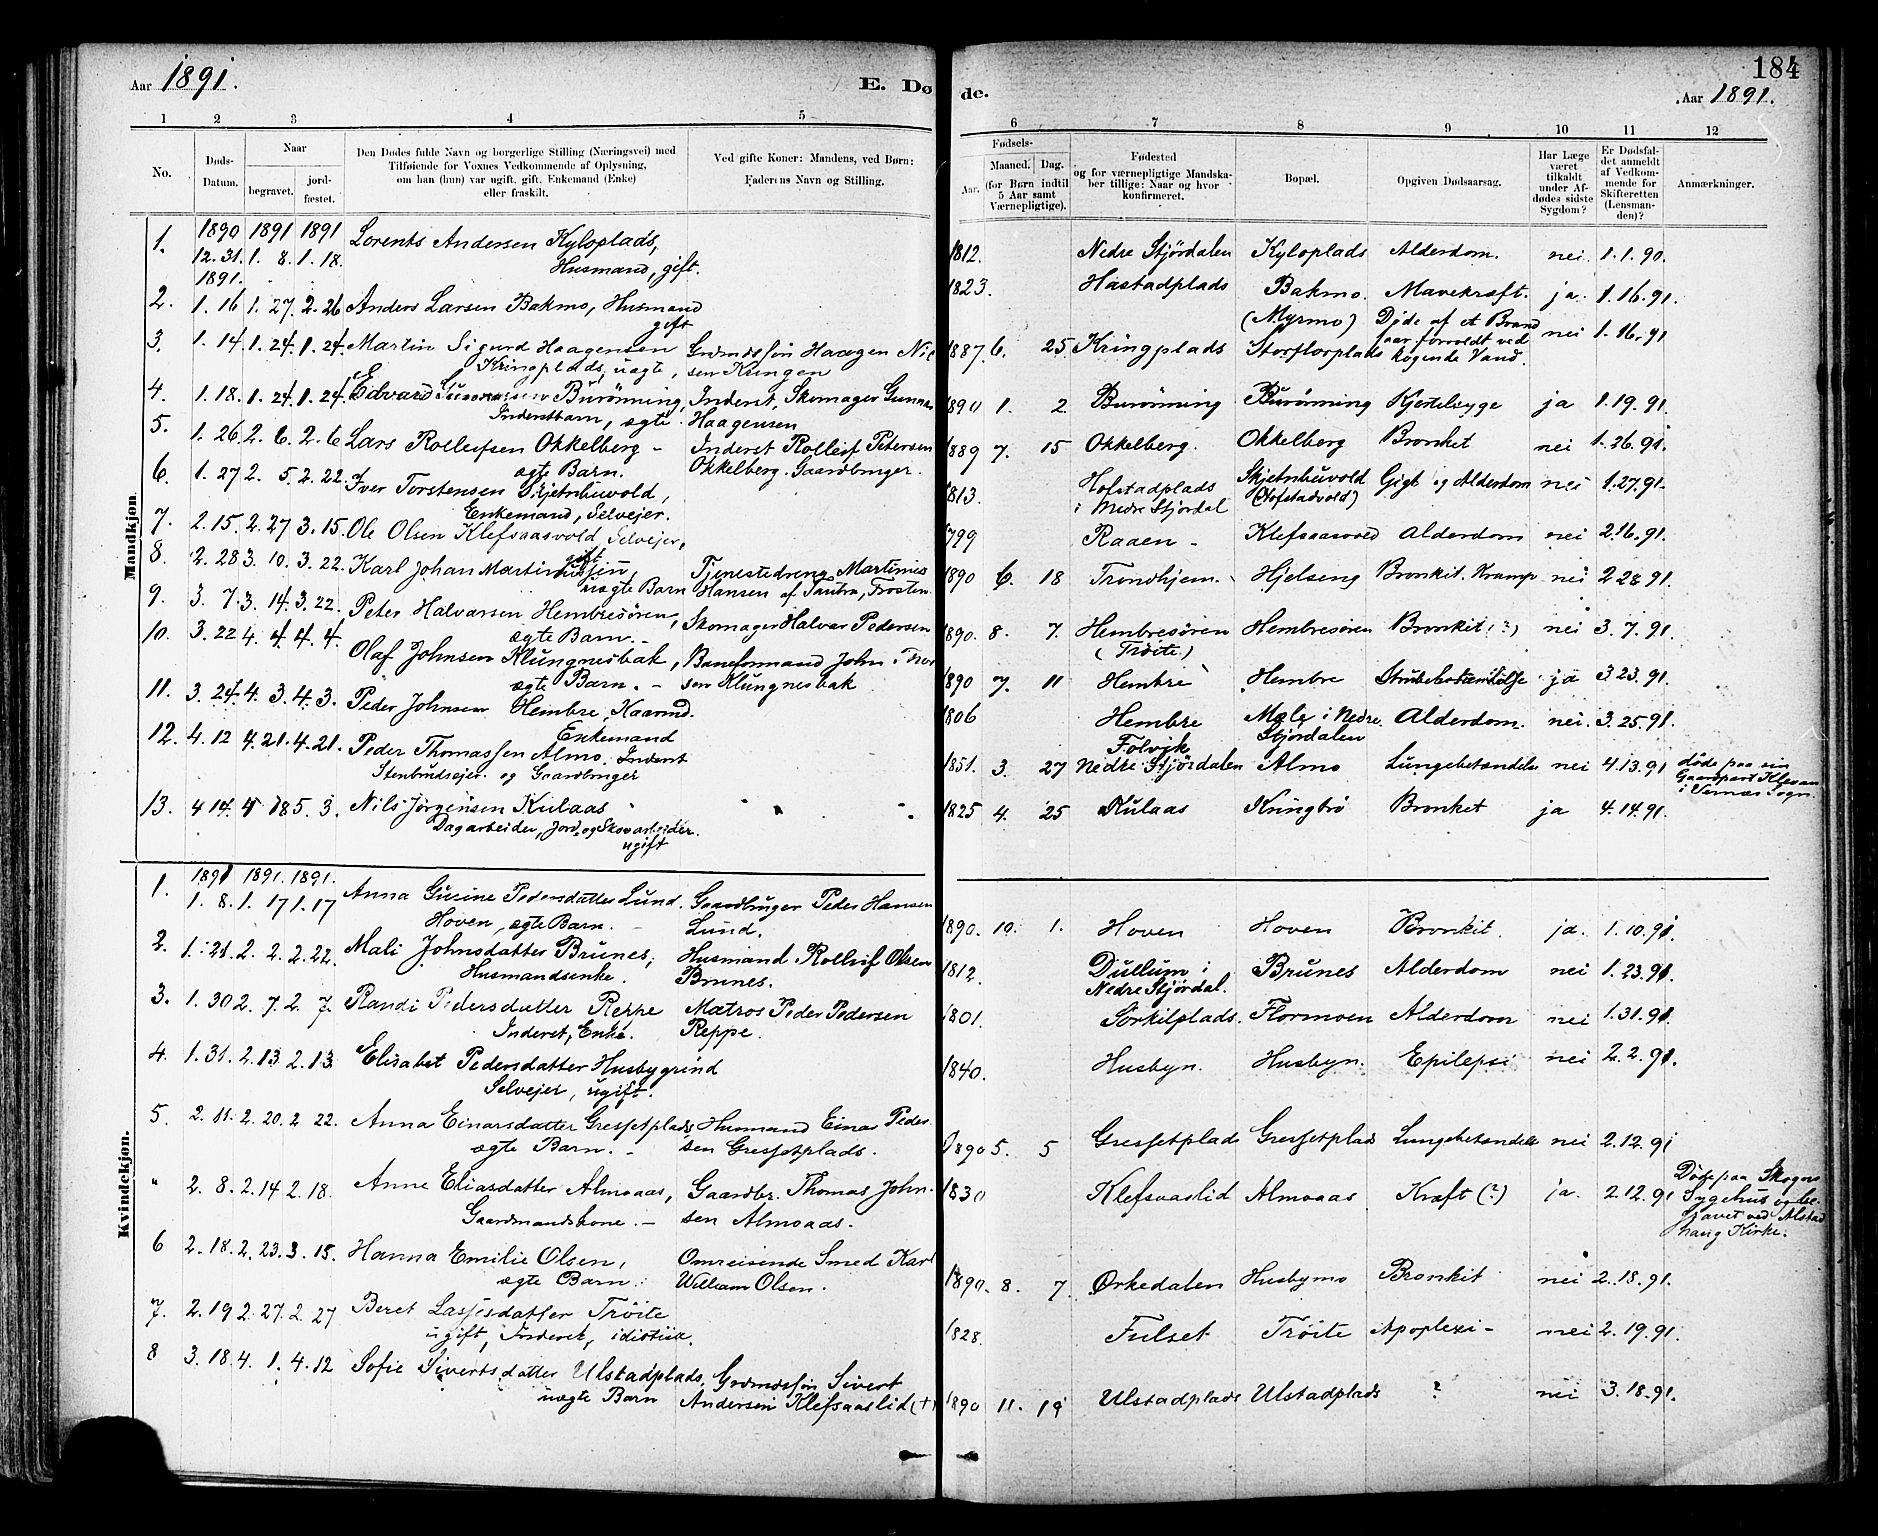 Aar 1891.
E. Dø
1 2 3 4 5
No.
Døds-Datum.
Naar
begravet.
jord-fæstet.
Den Dødes fulde Navn og borgerlige Stilling (Næringsvei) med
Tilføiende for Voxnes Vedkommende af Oplysning,
om han (hun) var ugift, gift, Enkemand (Enke)
eller fraskilt.
Ved gifte Koner: Mandens, ved Børn:
Faderens Navn og Stilling.
Mandkjøn.
1890 1891 1891
1. 12.31. 1. 8. 1.18. Lorents Andersen Kyloplads,
Husmand, gift.
1891.
2. 1.16 1.27. 2.26 Anders Larsen Bakmo, Husmand
gift
3. 1.14. 1.24. 1.24. Martin Sigurd Haagensen Grdmdssøn Haagen Nil
Kringplads, uægte, sen Kringen
4. 1.18. 1.24. 1.24. Edvard Burönning, Inderst, Skomager Gunnar
Inderstbarn, ægte. Haagensen
5. 1.26. 2. 6. 2. 6 Lars Rolleifsen Okkelberg - Inderst Rolleif Petersen
ægte Barn. Okkelberg. Gaardbruger.
6. 1.27 2. 5. 2.22. Iver Torstensen Skjetnhuvold,
Enkemand, Selvejer.
7. 2.15. 2.27 3.15. Ole Olsen Klefsaasvold Selvejer,
gift
8. 2.28 3.10. 3.22. Karl Johan Martinussen, Tjenestedreng Martinus
uægte Barn Hansen af Tautra, Frosten
9. 3. 7. 3.14. 3.22. Peter Halvarsen Hembresören, Skomager Halvar Pedersen
ægte Barn. -
10. 3.22 4. 4. 4. 4. Olaf Johnsen Klungnesbak, Baneformand John Iver
ægte Barn. - sen Klungnesbak
11. 3.24. 4. 3. 4. 3. Peder Johnsen Hembre, Kaarmd.
Enkemand
12. 4.12 4.21. 4.21. Peder Thomassen Almo. Inderst
Stenbrudsejer og Gaardbruger
13. 4 14. 4 18 5. 3. Nils Jørgensen Kulaas
Dagarbeider, Jord- og Skovarbeider.
ugift
Kvindekjøn.
1891 1891. 1891.
1. 1. 8. 1. 17 1. 17 Anna Gusine Pedersdatter Lund. Gaardbruger Peder Hansen
Hoven, ægte Barn. - Lund.
2. 1.21. 2. 2. 2.22. Mali Johnsdatter Brunes, Husmand Rolleif Olsen
Husmandsenke. Brunes.
3. 1.30 2. 7. 2. 7. Randi Pedersdatter Reppe Matros Peder Pedersen
Inderst, Enke. Reppe.
4. 1.31. 2.13 2.13 Elisabet Pedersdatter Husbygrind
Selvejer, ugift.
5. 2. 11. 2. 20. 2 22. Anna Einarsdatter Gressetplads Husmand Einar Peder
ægte Barn. - sen Gressetplads.
" 2. 8. 2.14 2.18. Anne Eliasdatter Almoaas, Gaardbr. Thomas John-
Gaardmandskone. - sen Almoaas.
6 2.18. 2.23. 3.15. Hanna Emilie Olsen, Omreisende Smed Karl
ægte Barn. William Olsen.
7. 2.19 2.27. 2.27 Beret Lassesdatter Tröite
ugift, idiotisk.
8 3.18. 4. 1. 4.12 Sofie Sivertsdatter Ulstadplads, Grdmdssøn Sivert
uægte Barn Andersen Klefsaaslid (+)
184
de.
Aar 1891.
6 7 8 9 10 11 12
Fødsels-
Aar.
Maaned. Dag.
(for Børn indtil
5 Aar samt
Værnepligtige).
Fødested
og for værnepligtige Mandska-
ber tillige: Naar og hvor
konfirmeret.
Bopæl.
Opgiven Dødsaarsag.
Har Læge
været
tilkaldt
under Af-
dødes sidste
Sygdom?
Er Dødsfal-
det anmeldt
af Vedkom-
mende for
Skifteretten
(Lensman-
den)?
Anmærkninger.
1812. Nedre Stjördalen Kyloplads Alderdom. nei. 1.1.90.
1823. Hastadplads Bakmo. Mavekræft. ja. 1.16.91.
(Myrmo)
1887. 6. 25 Kringplads Storflorplads Döde af et Brand
saar forvoldt ved
kogende Vand. nei 1.16.91
1890 1. 2 Burönning Burönning Kjertelsyge ja 1.19.91.
1889 7. 15 Okkelberg. Okkelberg Bronket nei 1.26.91.
1813. Hofstadplads Skjetnhuvold Gigt og Alderdom nei 1.27.91.
i Nedre Stjördal (Hofstadvold)
1799 Raaen - Klefsaasved Alderdom nei 2.16.91.
1890 6. 18 Trondhjem. Hjelseng Bronkit. Kramp nei 2 28.91.
1890. 8. 7. Hembresören Hembresören Bronkit (?) nei 3.7.91.
(Tröite.)
1890 7. 11 Hembre Hembre Strubebetændelse ja 3.23.91.
1806 Hembre Mæle i Nedre Alderdom. nei. 3.25.91.
Stjördalen
Folvik
1851. 3. 27 Nedre Stjördalen Almo Lungebetændelse nei 4.13.91 døde paa sin
Gaardpart Klevan
i Værnes Sogn.
1825 4. 25 Kulaas Kringbrö Bronket ja 4.14.91.
1890. 10. 1. Hoven Hoven Bronkit. ja. 1.10.91.
1812. Dullum i Brunes Alderdom nei 1.23.91.
Nedre Stjördal.
1801. Torkilplads. Flormoen Alderdom nei 1.31.91.
1840. Husbyn. Husbyn. Epilepsi nei 2.2.91.
1890 5. 5 Gressetplads Gressetplads Lungebetændelse nei 2.12.91
1830 Klefsvaslid Almoaas Kræft (?) ja. 2.12.91 Døde paa Skogns
Sygehus og be-
gravet ved Alstad
haug Kirke.
1890. 8. 7. Ørkedalen Husbymo Bronkit nei 2.18.91.
1828. Fulset Tröite Apoplexi - nei 2.19.91.
1890 11. 19 Ulstadplads Ulstadplads ? nei 3.18.91.